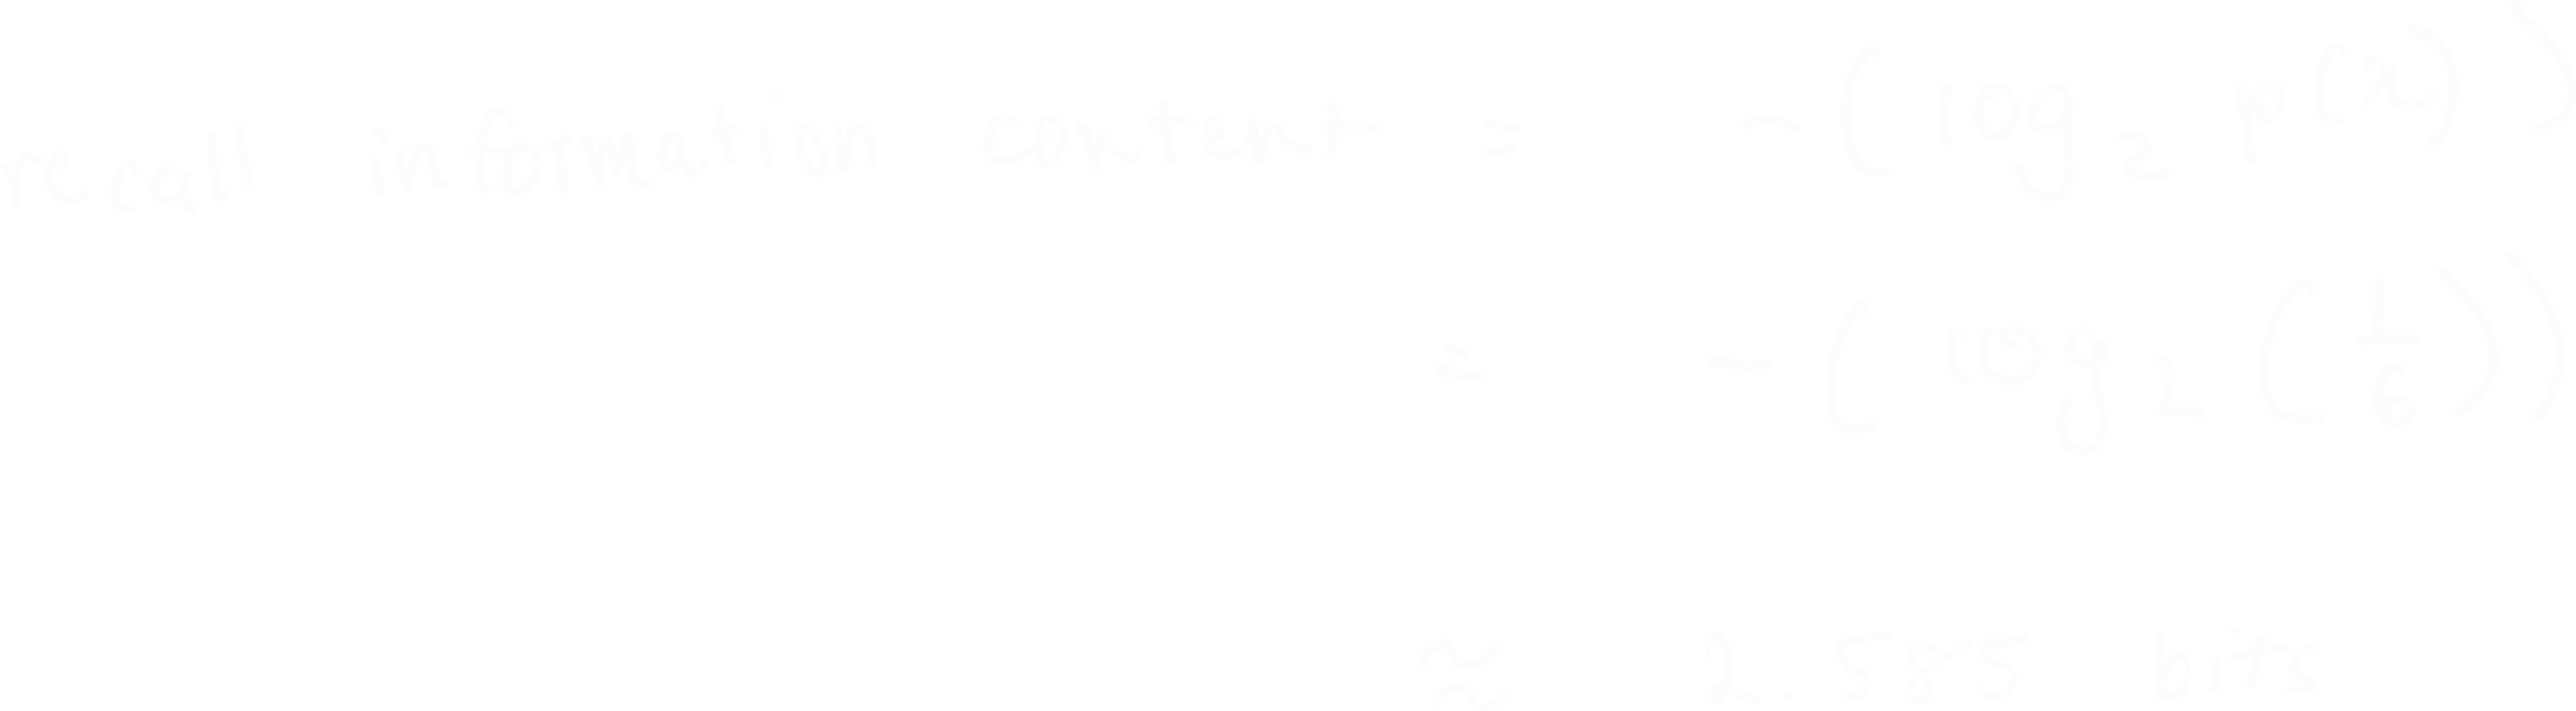 recall information content = -(log₂ p(x))
= -(log₂(1/6))
≈ 2.585 bits